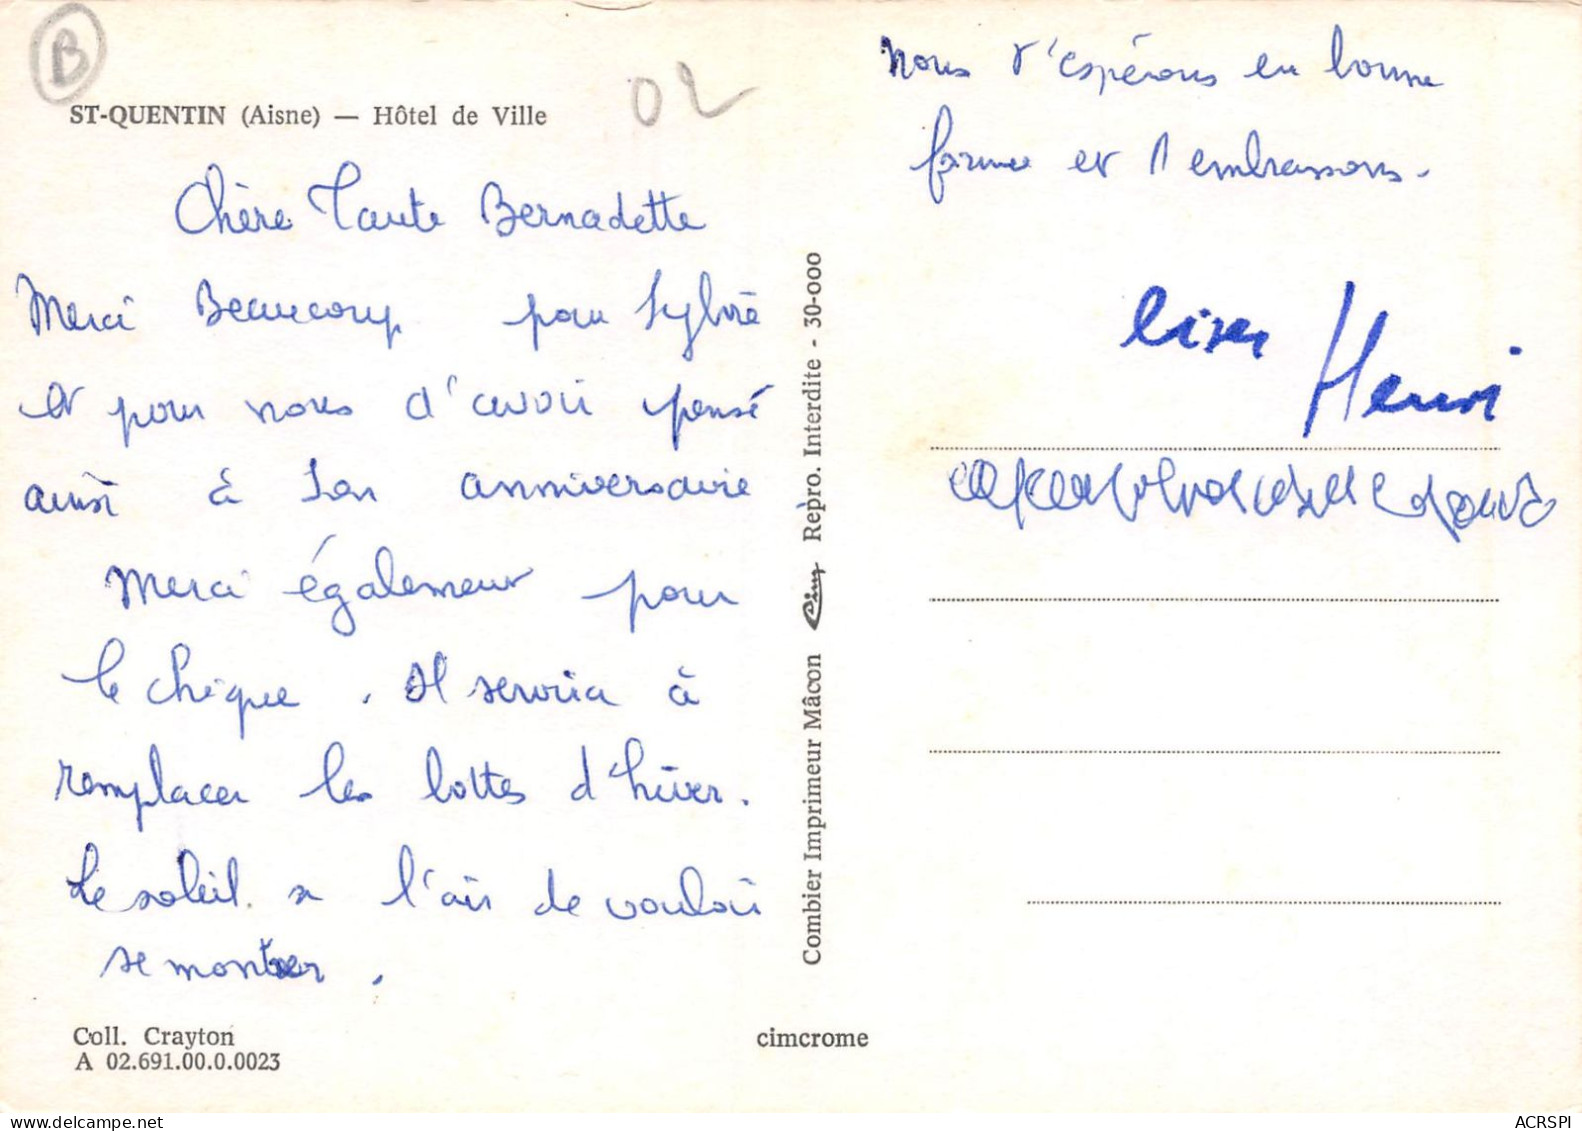 B
ST-QUENTIN (Aisne) — Hôtel de Ville
02
Chère Tante Bernadette
Merci Beaucoup pour Sylvie
et pour nous d'avoir pensé
ainsi à son anniversaire
Merci également pour
le chèque. Il servira à
remplacer les bottes d'hiver.
Le soleil a l'air de vouloir
se montrer.
Coll. Crayton
A 02.691.00.0.0023
Combier Imprimeur Mâcon Cim Repro. Interdite - 30-000
cimcrome
nous t'espérons en bonne
forme et t'embrassons.
Henri
delcampe.net
ACRSPI